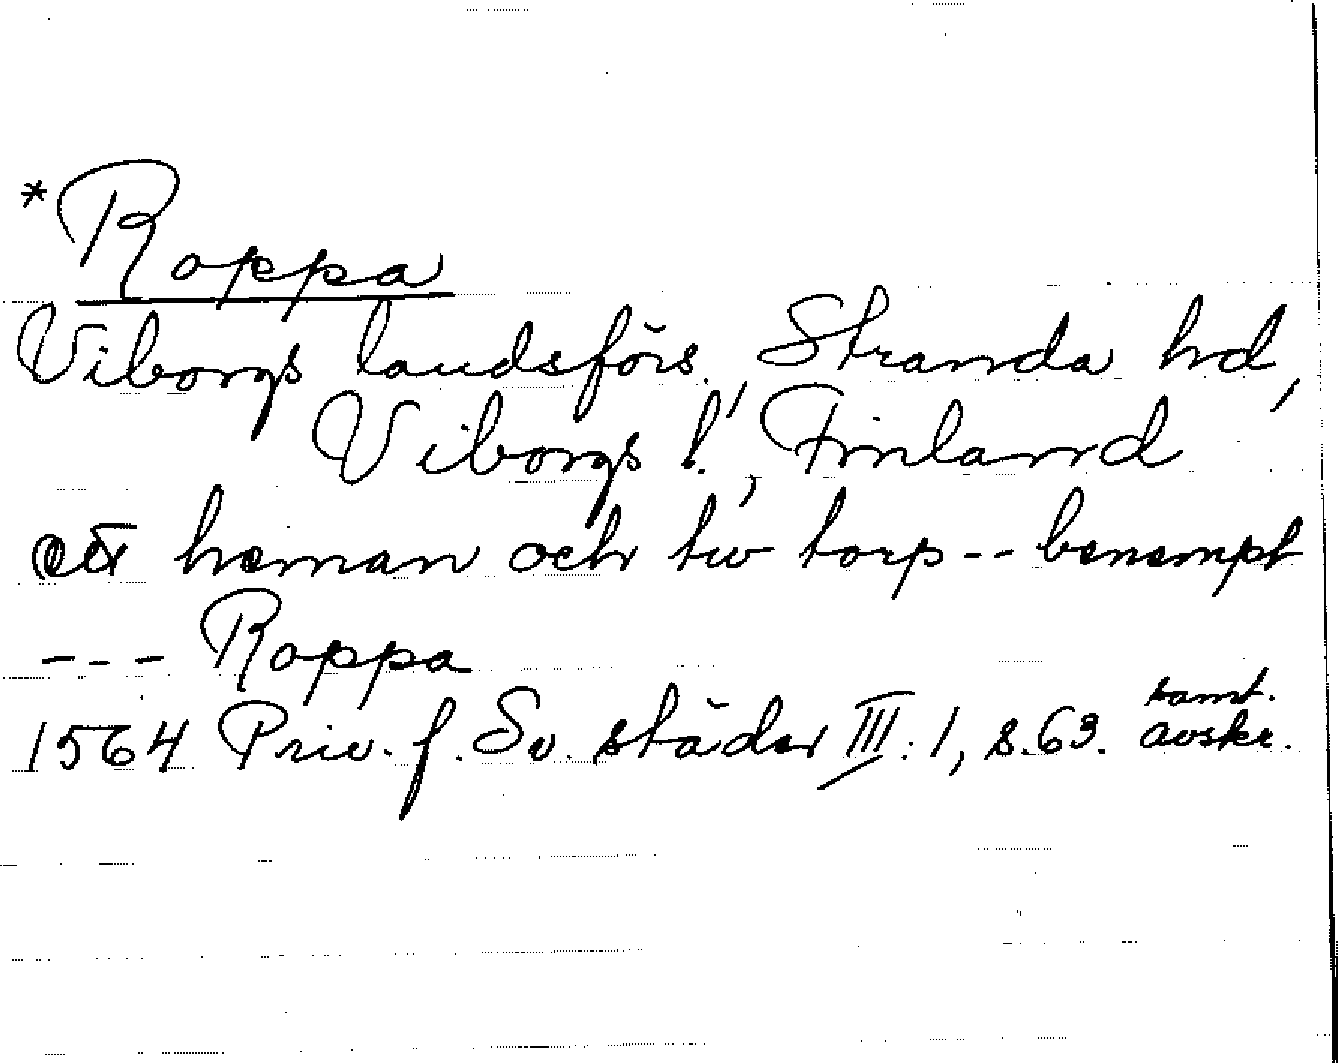 *Roppa
Viborgs landsförs., Stranda hd,
Viborgs l., Finland
ett heman och tw torp -- benempt
--- Roppa
1564 Priv. f. Sv. städer III:1, s.63. samt. avskr.